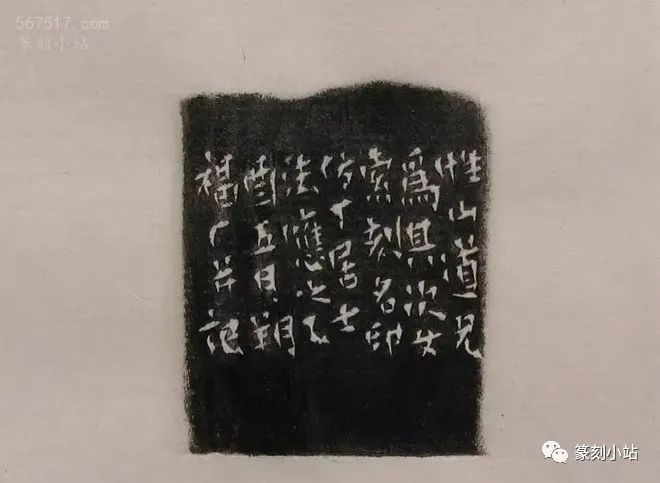 567517.com
篆刻小站
性山道兄
為其次女
索刻名印
仿丁居士
法應之乙
酉五月朔
福厂并記
篆刻小站